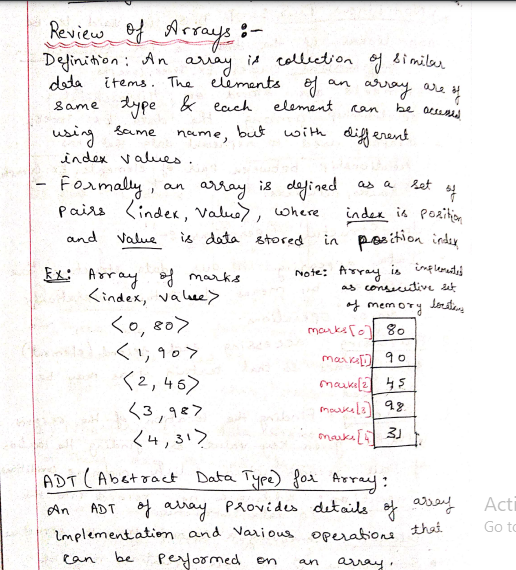 Review of Arrays :-
Definition : An array is collection of similar
data items. The elements of an array are of
same type & each element can be accessed
using same name, but with different
index values.
- Formally, an array is defined as a set of
pairs <index, Value>, where index is position
and Value is data stored in position index
Ex: Array of marks
<index, value>
<0, 80>
<1, 90>
<2, 45>
<3, 98>
<4, 31>
Note: Array is implemented
as consecutive set
of memory locations
marks[0] 80
marks[1] 90
marks[2] 45
marks[3] 98
marks[4] 31
ADT (Abstract Data Type) for Array:
An ADT of array provides details of array
implementation and various operations that
can be performed on an array.
Acti
Go to